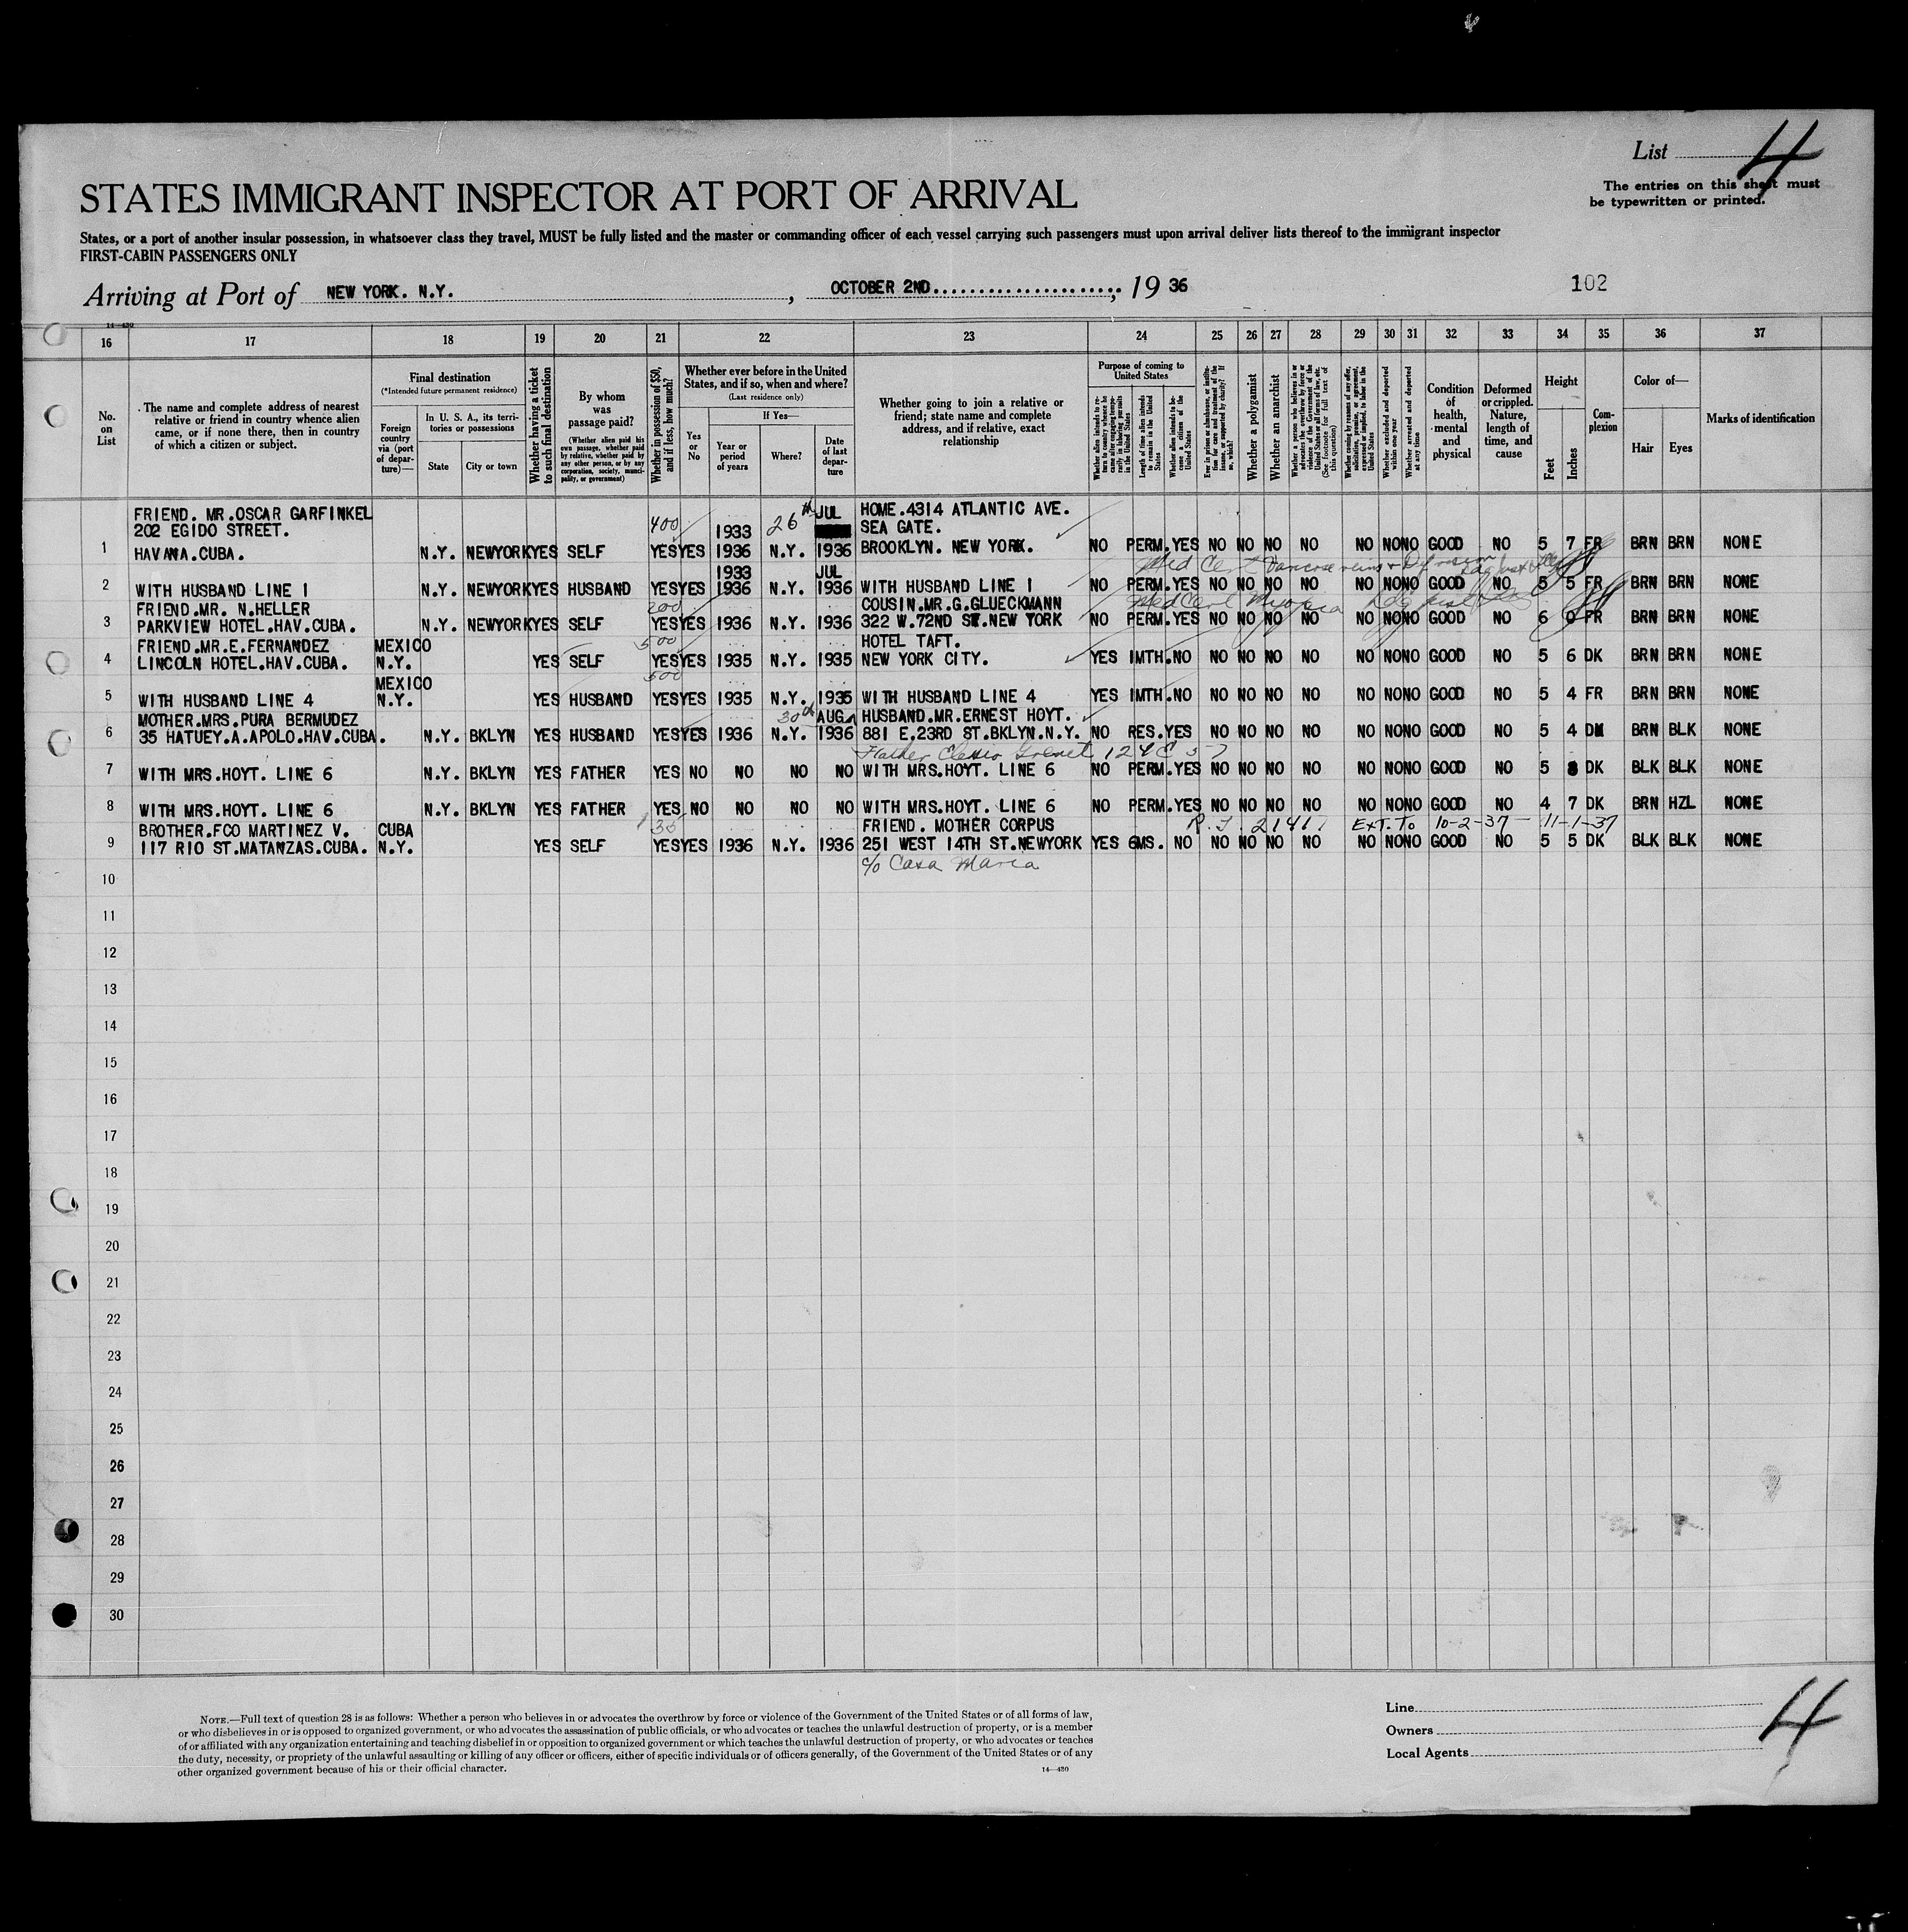 List 4
The entries on this sheet must
be typewritten or printed.
STATES IMMIGRANT INSPECTOR AT PORT OF ARRIVAL
States, or a port of another insular possession, in whatsoever class they travel, MUST be fully listed and the master or commanding officer of each vessel carrying such passengers must upon arrival deliver lists thereof to the immigrant inspector
FIRST-CABIN PASSENGERS ONLY
Arriving at Port of NEW YORK. N.Y. , OCTOBER 2ND , 19 36 102
14—430
16 17 18 19 20 21 22 23 24 25 26 27 28 29 30 31 32 33 34 35 36 37
No. on List
The name and complete address of nearest relative or friend in country whence alien came, or if none there, then in country of which a citizen or subject.
Final destination
(*Intended future permanent residence)
Foreign country via (port of departure)—
In U. S. A., its territories or possessions
State City or town
Whether having a ticket to such final destination
By whom was passage paid?
(Whether alien paid his own passage, whether paid by relative, whether paid by any other person, or by any corporation, society, municipality, or government)
Whether in possession of $50, and if less, how much?
Whether ever before in the United States, and if so, when and where?
(Last residence only)
Yes or No
If Yes—
Year or period of years
Where?
Date of last departure
Whether going to join a relative or friend; state name and complete address, and if relative, exact relationship
Purpose of coming to United States
Length of time alien intends to remain in the United States
Whether alien intends to become a citizen of the United States
Whether a polygamist
Whether an anarchist
(See footnote for full text of this question)
Whether excluded and deported within one year
Whether arrested and deported at any time
Condition of health, mental and physical
Deformed or crippled. Nature, length of time, and cause
Height
Feet Inches
Complexion
Color of—
Hair Eyes
Marks of identification
FRIEND. MR.OSCAR GARFINKEL JUL HOME.4314 ATLANTIC AVE.
202 EGIDO STREET. 400 1933 26th SEA GATE.
1 HAVANA.CUBA. N.Y. NEWYORK YES SELF YES YES 1936 N.Y. 1936 BROOKLYN. NEW YORK. NO PERM. YES NO NO NO NO NO NO NO GOOD NO 5 7 FR BRN BRN NONE
1933 JUL Med Cert Varicose veins
2 WITH HUSBAND LINE 1 N.Y. NEWYORK YES HUSBAND YES YES 1936 N.Y. 1936 WITH HUSBAND LINE 1 NO PERM. YES NO NO NO NO NO NO NO GOOD NO 5 5 FR BRN BRN NONE
FRIEND.MR. N.HELLER 200 COUSIN.MR.G.GLUECKMANN Med Cert Myopia
3 PARKVIEW HOTEL.HAV.CUBA. N.Y. NEWYORK YES SELF YES YES 1936 N.Y. 1936 322 W.72ND ST.NEW YORK NO PERM. YES NO NO NO NO NO NO NO GOOD NO 6 0 FR BRN BRN NONE
FRIEND.MR.E.FERNANDEZ MEXICO 500 HOTEL TAFT.
4 LINCOLN HOTEL.HAV.CUBA. N.Y. YES SELF YES YES 1935 N.Y. 1935 NEW YORK CITY. YES 1MTH. NO NO NO NO NO NO NO NO GOOD NO 5 6 DK BRN BRN NONE
MEXICO 500
5 WITH HUSBAND LINE 4 N.Y. YES HUSBAND YES YES 1935 N.Y. 1935 WITH HUSBAND LINE 4 YES 1MTH. NO NO NO NO NO NO NO NO GOOD NO 5 4 FR BRN BRN NONE
MOTHER.MRS.PURA BERMUDEZ 30th AUG HUSBAND.MR.ERNEST HOYT.
6 35 HATUEY.A.APOLO.HAV.CUBA. N.Y. BKLYN YES HUSBAND YES YES 1936 N.Y. 1936 881 E.23RD ST.BKLYN.N.Y. NO RES. YES NO NO NO NO NO NO NO GOOD NO 5 4 BRN BLK NONE
Father 124 E 57
7 WITH MRS.HOYT. LINE 6 N.Y. BKLYN YES FATHER YES NO NO NO NO WITH MRS.HOYT. LINE 6 NO PERM. YES NO NO NO NO NO NO NO GOOD NO 5 DK BLK BLK NONE
8 WITH MRS.HOYT. LINE 6 N.Y. BKLYN YES FATHER YES NO NO NO NO WITH MRS.HOYT. LINE 6 NO PERM. YES NO NO NO NO NO NO NO GOOD NO 4 7 DK BRN HZL NONE
BROTHER.FCO MARTINEZ V. CUBA 135 FRIEND. MOTHER CORPUS EXT. TO 10-2-37 — 11-1-37
9 117 RIO ST.MATANZAS.CUBA. N.Y. YES SELF YES YES 1936 N.Y. 1936 251 WEST 14TH ST.NEWYORK YES 6MS. NO NO NO NO NO NO NO NO GOOD NO 5 5 DK BLK BLK NONE
c/o Casa Maria
10
11
12
13
14
15
16
17
18
19
20
21
22
23
24
25
26
27
28
29
30
NOTE.—Full text of question 28 is as follows: Whether a person who believes in or advocates the overthrow by force or violence of the Government of the United States or of all forms of law,
or who disbelieves in or is opposed to organized government, or who advocates the assassination of public officials, or who advocates or teaches the unlawful destruction of property, or is a member
of or affiliated with any organization entertaining and teaching disbelief in or opposition to organized government or which teaches the unlawful destruction of property, or who advocates or teaches
the duty, necessity, or propriety of the unlawful assaulting or killing of any officer or officers, either of specific individuals or of officers generally, of the Government of the United States or of any
other organized government because of his or their official character.
14—430
Line
Owners
Local Agents
4